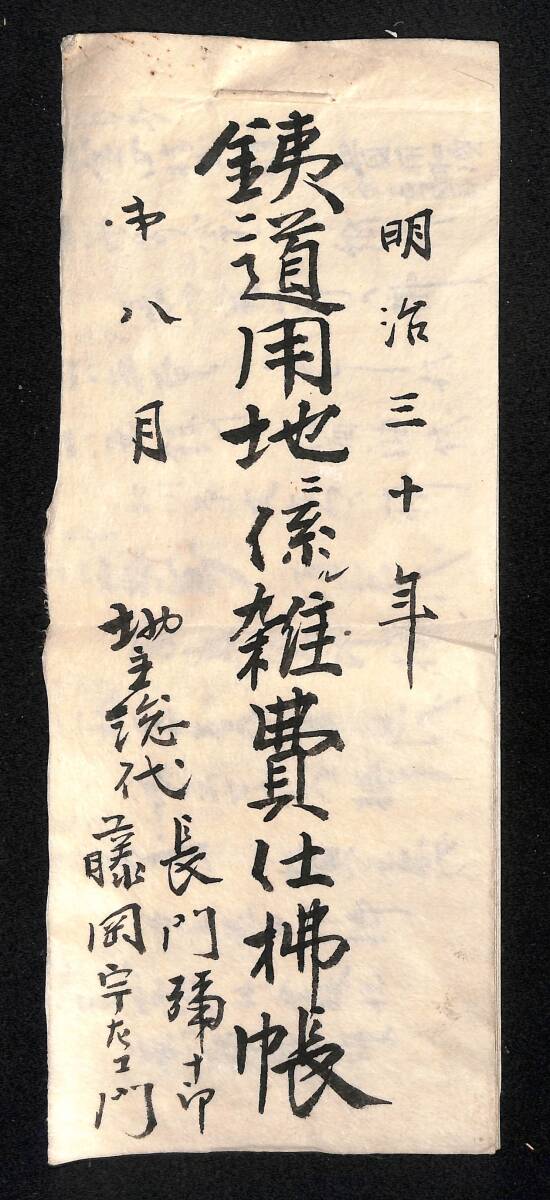 明治三十年
銕道用地ニ係ル雑費仕拂帳
第八月
地主総代
長門彌十郎
藤岡宇左エ門